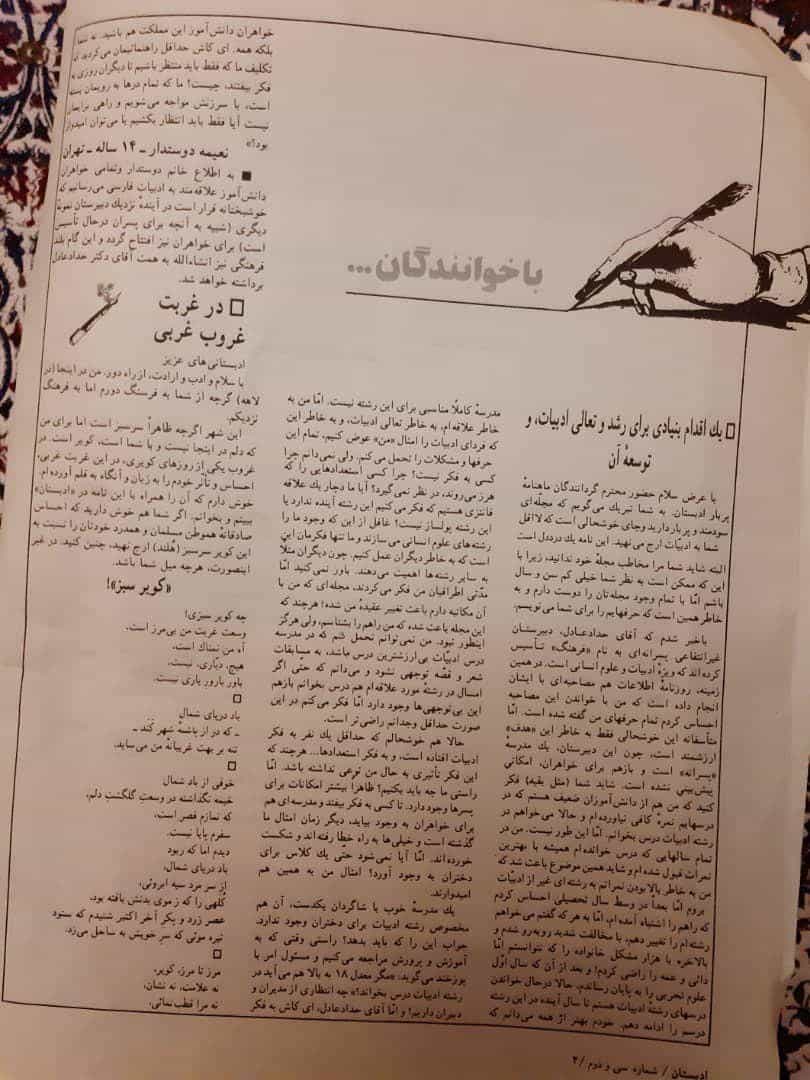 با خوانندگان...
□ یك اقدام بنیادی برای رشد و تعالی ادبیات، و
توسعهٔ آن
با عرض سلام حضور محترم گردانندگان ماهنامهٔ
پربار ادبستان. به شما تبریك می‌گویم كه مجله‌ای
سودمند و پربار دارید وجای خوشحالی است كه لااقل
شما به ادبیّات ارج می‌نهید. این نامه یك درددل است
البته شاید شما مرا مخاطب مجلهٔ خود ندانید، زیرا با
این كه ممكن است به نظر شما خیلی كم سن و سال
باشم امّا با تمام وجود مجله‌تان را دوست دارم و به
خاطر همین است كه حرفهایم را برای شما می‌نویسم.
باخبر شدم كه آقای حدادعادل، دبیرستان
غیرانتفاعی پسرانه‌ای به نام «فرهنگ» تأسیس
كرده‌اند كه ویژهٔ ادبیات و علوم انسانی است. درهمین
زمینه، روزنامهٔ اطلاعات هم مصاحبه‌ای با ایشان
انجام داده است كه من با خواندن این مصاحبه
احساس كردم تمام حرفهای من گفته شده است. امّا
متأسفانه این خوشحالی فقط به خاطر این «هدف»
ارزشمند است، چون این دبیرستان، یك مدرسهٔ
«پسرانه» است و بازهم برای خواهران، امكانی
پیش‌بینی نشده است. شاید شما (مثل بقیه) فكر
كنید كه من هم از دانش‌آموزان ضعیف هستم كه در
درسهایم نمرهٔ كافی نیاورده‌ام و حالا می‌خواهم در
رشته ادبیات درس بخوانم. امّا این طور نیست. من در
تمام سالهایی كه درس خوانده‌ام همیشه با بهترین
نمرات قبول شده‌ام و شاید همین موضوع باعث شد كه
من به خاطر بالا بودن نمراتم به رشته‌ای غیر از ادبیّات
بروم امّا بعداً در وسط سال تحصیلی احساس كردم
كه راهم را اشتباه آمده‌ام، امّا به هر كه گفتم می‌خواهم
رشته‌ام را تغییر دهم، با مخالفت شدید روبه‌رو شدم و
بالاخره با هزار مشكل خانواده را كه نتوانستم امّا
دائی و عمه را راضی كردم! و بعد از آن كه سال اوّل
علوم تجربی را به پایان رساندم، حالا درحال خواندن
درسهای رشتهٔ ادبیات هستم تا سال آینده در این رشته
درسم را ادامه دهم. خودم بهتر از همه می‌دانم كه
مدرسهٔ كاملاً مناسبی برای این رشته نیست. امّا من به
خاطر علاقه‌ام، به خاطر تعالی ادبیات، و به خاطر این
كه فردای ادبیات را امثال «من» عوض كنیم، تمام این
حرفها و مشكلات را تحمل می‌كنم. ولی نمی‌دانم چرا
كسی به فكر نیست؟ چرا كسی استعدادهایی را كه
هرز می‌روند، در نظر نمی‌گیرد؟ آیا ما دچار یك علاقه
فانتزی هستیم كه فكر می‌كنیم این رشته آینده ندارد یا
این رشته پولساز نیست؟ غافل از این كه وجود ما را
رشته‌های علوم انسانی می‌سازند و ما تنها فكرمان این
است كه به خاطر دیگران عمل كنیم. چون دیگران مثلاً
به سایر رشته‌ها اهمیت می‌دهند. باور نمی‌كنید امّا
مدّتی اطرافیان من فكر می‌كردند، مجله‌ای كه من با
آن مكاتبه دارم باعث تغییر عقیدهٔ من شده! هرچند كه
این مجله باعث شده كه من راهم را بشناسم، ولی هرگز
اینطور نبود. من نمی‌توانم تحمل كنم كه در مدرسه
درس ادبیّات بی‌ارزشترین درس باشد، به مسابقات
شعر و قصّه توجهی نشود و می‌دانم كه حتّی اگر
امسال در رشتهٔ مورد علاقه‌ام هم درس بخوانم بازهم
این بی‌توجهی‌ها وجود دارد امّا فكر می‌كنم در این
صورت حداقل وجدانم راضی‌تر است.
حالا هم خوشحالم كه حداقل یك نفر به فكر
ادبیات افتاده است، و به فكر استعدادها... هرچند كه
این فكر تأثیری به حال من نوعی نداشته باشد. امّا
راستی ما چه باید بكنیم؟ ظاهراً بیشتر امكانات برای
پسرها وجود دارد. تا كسی به فكر بیفتد و مدرسه‌ای هم
برای خواهران به وجود بیاید، دیگر زمان امثال ما
گذشته است و خیلی‌ها به راه خطا رفته‌اند و شكست
خورده‌اند. امّا آیا نمی‌شود حتّی یك كلاس برای
دختران به وجود آورد؟ امثال من به همین هم
امیدوارند.
یك مدرسهٔ خوب با شاگردان یكدست، آن هم
مخصوص رشته ادبیات برای دختران وجود ندارد.
جواب این را كه باید بدهد؟ راستی وقتی كه به
آموزش و پرورش مراجعه می‌كنیم و مسئول امر با
پوزخند می‌گوید: «مگر معدل ۱۸ به بالا هم می‌آید در
رشته ادبیات درس بخواند؟» چه انتظاری از مدیران و
دبیران داریم! و امّا آقای حدادعادل، ای كاش به فكر
خواهران دانش‌آموز این مملكت هم باشید. نه شما
بلكه همه. ای كاش حداقل راهنمائیمان می‌كردید كه
تكلیف ما كه فقط باید منتظر باشیم تا دیگران روزی به
فكر بیفتند، چیست؟ ما كه تمام درها به رویمان بسته
است، با سرزنش مواجه می‌شویم و راهی برایمان
نیست آیا فقط باید انتظار بكشیم یا می‌توان امیدوار
بود؟»
نعیمه دوستدار ـ ۱۴ ساله ـ تهران
■ به اطلاع خانم دوستدار وتمامی خواهران
دانش‌آموز علاقه‌مند به ادبیات فارسی می‌رسانیم كه
خوشبختانه قرار است در آیندهٔ نزدیك دبیرستان نمونهٔ
دیگری (شبیه به آنچه برای پسران درحال تأسیس
است) برای خواهران نیز افتتاح گردد و این گام بلند
فرهنگی نیز انشاءالله به همت آقای دكتر حدادعادل
برداشته خواهد شد.
□ در غربت
غروب غربی
ادبستانی‌های عزیز
با سلام و ادب و ارادت، از راه دور. من در اینجا (در
لاهه) گرچه از شما به فرسنگ دورم اما به فرهنگ
نزدیكم.
این شهر اگرچه ظاهراً سرسبز است اما برای من
كه دلم در اینجا نیست و با شما است، كویر است. در
غروب یكی از روزهای كویری، در این غربت غربی،
احساس و تأثر خودم را به زبان و آنگاه به قلم آورده‌ام.
خوش دارم كه آن را همراه با این نامه در «ادبستان»
ببینم و بخوانم. اگر شما هم خوش دارید كه احساس
صادقانهٔ هموطن مسلمان و همدرد خودتان را نسبت به
این كویر سرسبز (هلند) ارج نهید، چنین كنید. در غیر
اینصورت، هرچه میل شما باشد.
«كویر سبز»!
چه كویر سبزی!
وسعت غربت من بی‌مرز است.
آه من نمناك است،
هیچ، دیاری، نیست.
باور بارور یاری نیست.
□
باد دریای شمال
ـ كه در از پاشنهٔ شهر كَنَد ـ
تنه بر بهت غریبانهٔ من می‌ساید.
□
خوفی از باد شمال
خیمه نگذاشته در وسعتِ گلگشتِ دلم،
كه نمازم قصر است،
سفرم پایا نیست.
دیدم اما كه ربود
باد دریای شمال،
از سر مرد سیه ابروئی،
كلهی را كه ز موی بدنش بافته بود.
عصر زرد و یكر آخر اكتبر شنیدم كه ستود
تیره موئی كه سرِ خویش به ساحل می‌زد.
□
مرز تا مرز، كویر،
نه علامت، نه نشان،
نه مرا قطب نمائی.
ادبستان / شماره سی و دوم / ۲